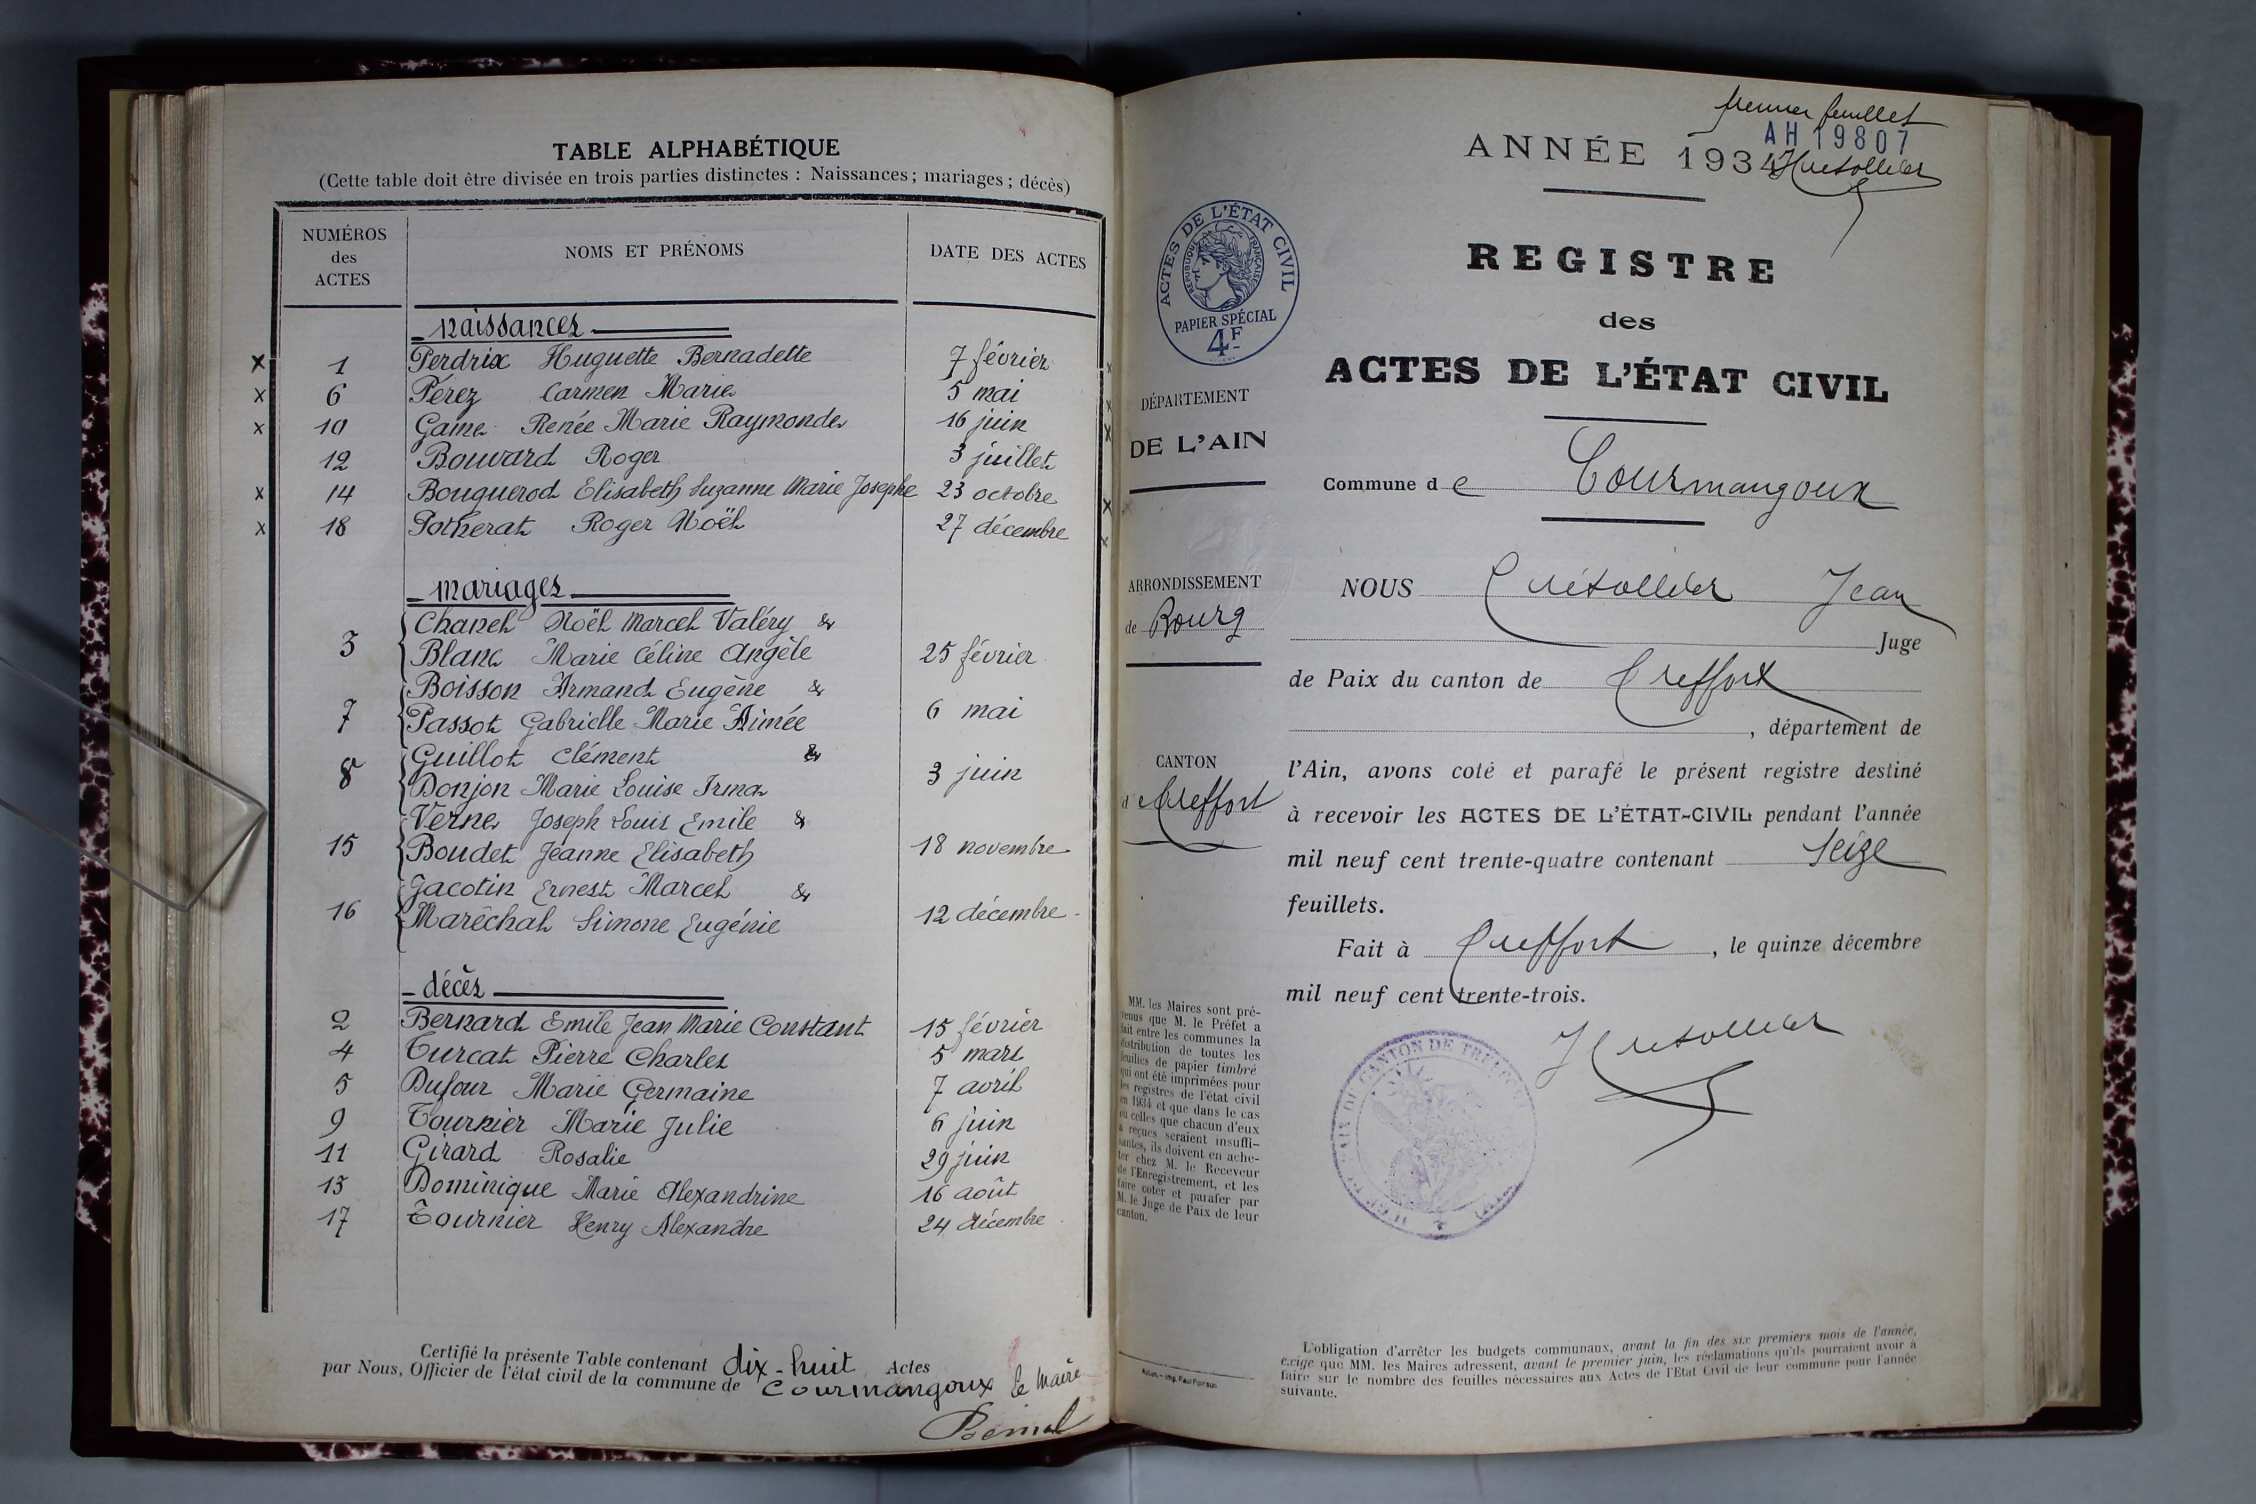 TABLE ALPHABÉTIQUE
(Cette table doit être divisée en trois parties distinctes : Naissances ; mariages ; décès)
NUMÉROS des ACTES
NOMS ET PRÉNOMS
DATE DES ACTES
naissances
x 1 Perdrix Huguette Bernadette 7 février x
x 6 Pérez Carmen Marie 5 mai x
x 10 Game Renée Marie Raymonde 16 juin x
12 Bouvard Roger 3 juillet
x 14 Bouquerod Elisabeth Suzanne Marie Josephe 23 octobre x
x 18 Potherat Roger Noël 27 décembre x
mariages
Chanel Noël Marcel Valéry &
3 Blanc Marie Céline Angèle 25 février
Boisson Armand Eugène &
7 Passot Gabrielle Marie Aimée 6 mai
Guillot Clément &
8 Donjon Marie Louise Irma 3 juin
Verne Joseph Louis Emile &
15 Boudet Jeanne Elisabeth 18 novembre
Jacotin Ernest Marcel &
16 Maréchal Simone Eugénie 12 décembre
décès
2 Bernard Emile Jean Marie Constant 15 février
4 Turcat Pierre Charles 5 mars
5 Dufour Marie Germaine 7 avril
9 Tournier Marie Julie 6 juin
11 Girard Rosalie 29 juin
13 Dominique Marie Alexandrine 16 août
17 Tournier Henry Alexandre 24 décembre
Certifié la présente Table contenant dix-huit Actes
par Nous, Officier de l'état civil de la commune de Courmangoux Le Maire
premier feuillet
AH 19807
ANNÉE 1934
REGISTRE
des
ACTES DE L'ÉTAT CIVIL
ACTES DE L'ÉTAT CIVIL
RÉPUBLIQUE FRANÇAISE
PAPIER SPÉCIAL
4F
DÉPARTEMENT
DE L'AIN
Commune de Courmangoux
ARRONDISSEMENT
de Bourg
CANTON
de Treffort
NOUS Crétollier Jean
Juge
de Paix du canton de Treffort
, département de
l'Ain, avons coté et parafé le présent registre destiné
à recevoir les ACTES DE L'ÉTAT-CIVIL pendant l'année
mil neuf cent trente-quatre contenant seize
feuillets.
Fait à Treffort, le quinze décembre
mil neuf cent trente-trois.
MM. les Maires sont pré-
venus que M. le Préfet a
fait entre les communes la
distribution de toutes les
feuilles de papier timbré
qui ont été imprimées pour
les registres de l'état civil
en 1934 et que dans le cas
où celles que chacun d'eux
a reçues seraient insuffi-
santes, ils doivent en ache-
ter chez M. le Receveur
de l'Enregistrement, et les
faire coter et parafer par
M. le Juge de Paix de leur
canton.
L'obligation d'arrêter les budgets communaux, avant la fin des six premiers mois de l'année,
exige que MM. les Maires adressent, avant le premier juin, les réclamations qu'ils pourraient avoir à
faire sur le nombre des feuilles nécessaires aux Actes de l'Etat Civil de leur commune pour l'année
suivante.